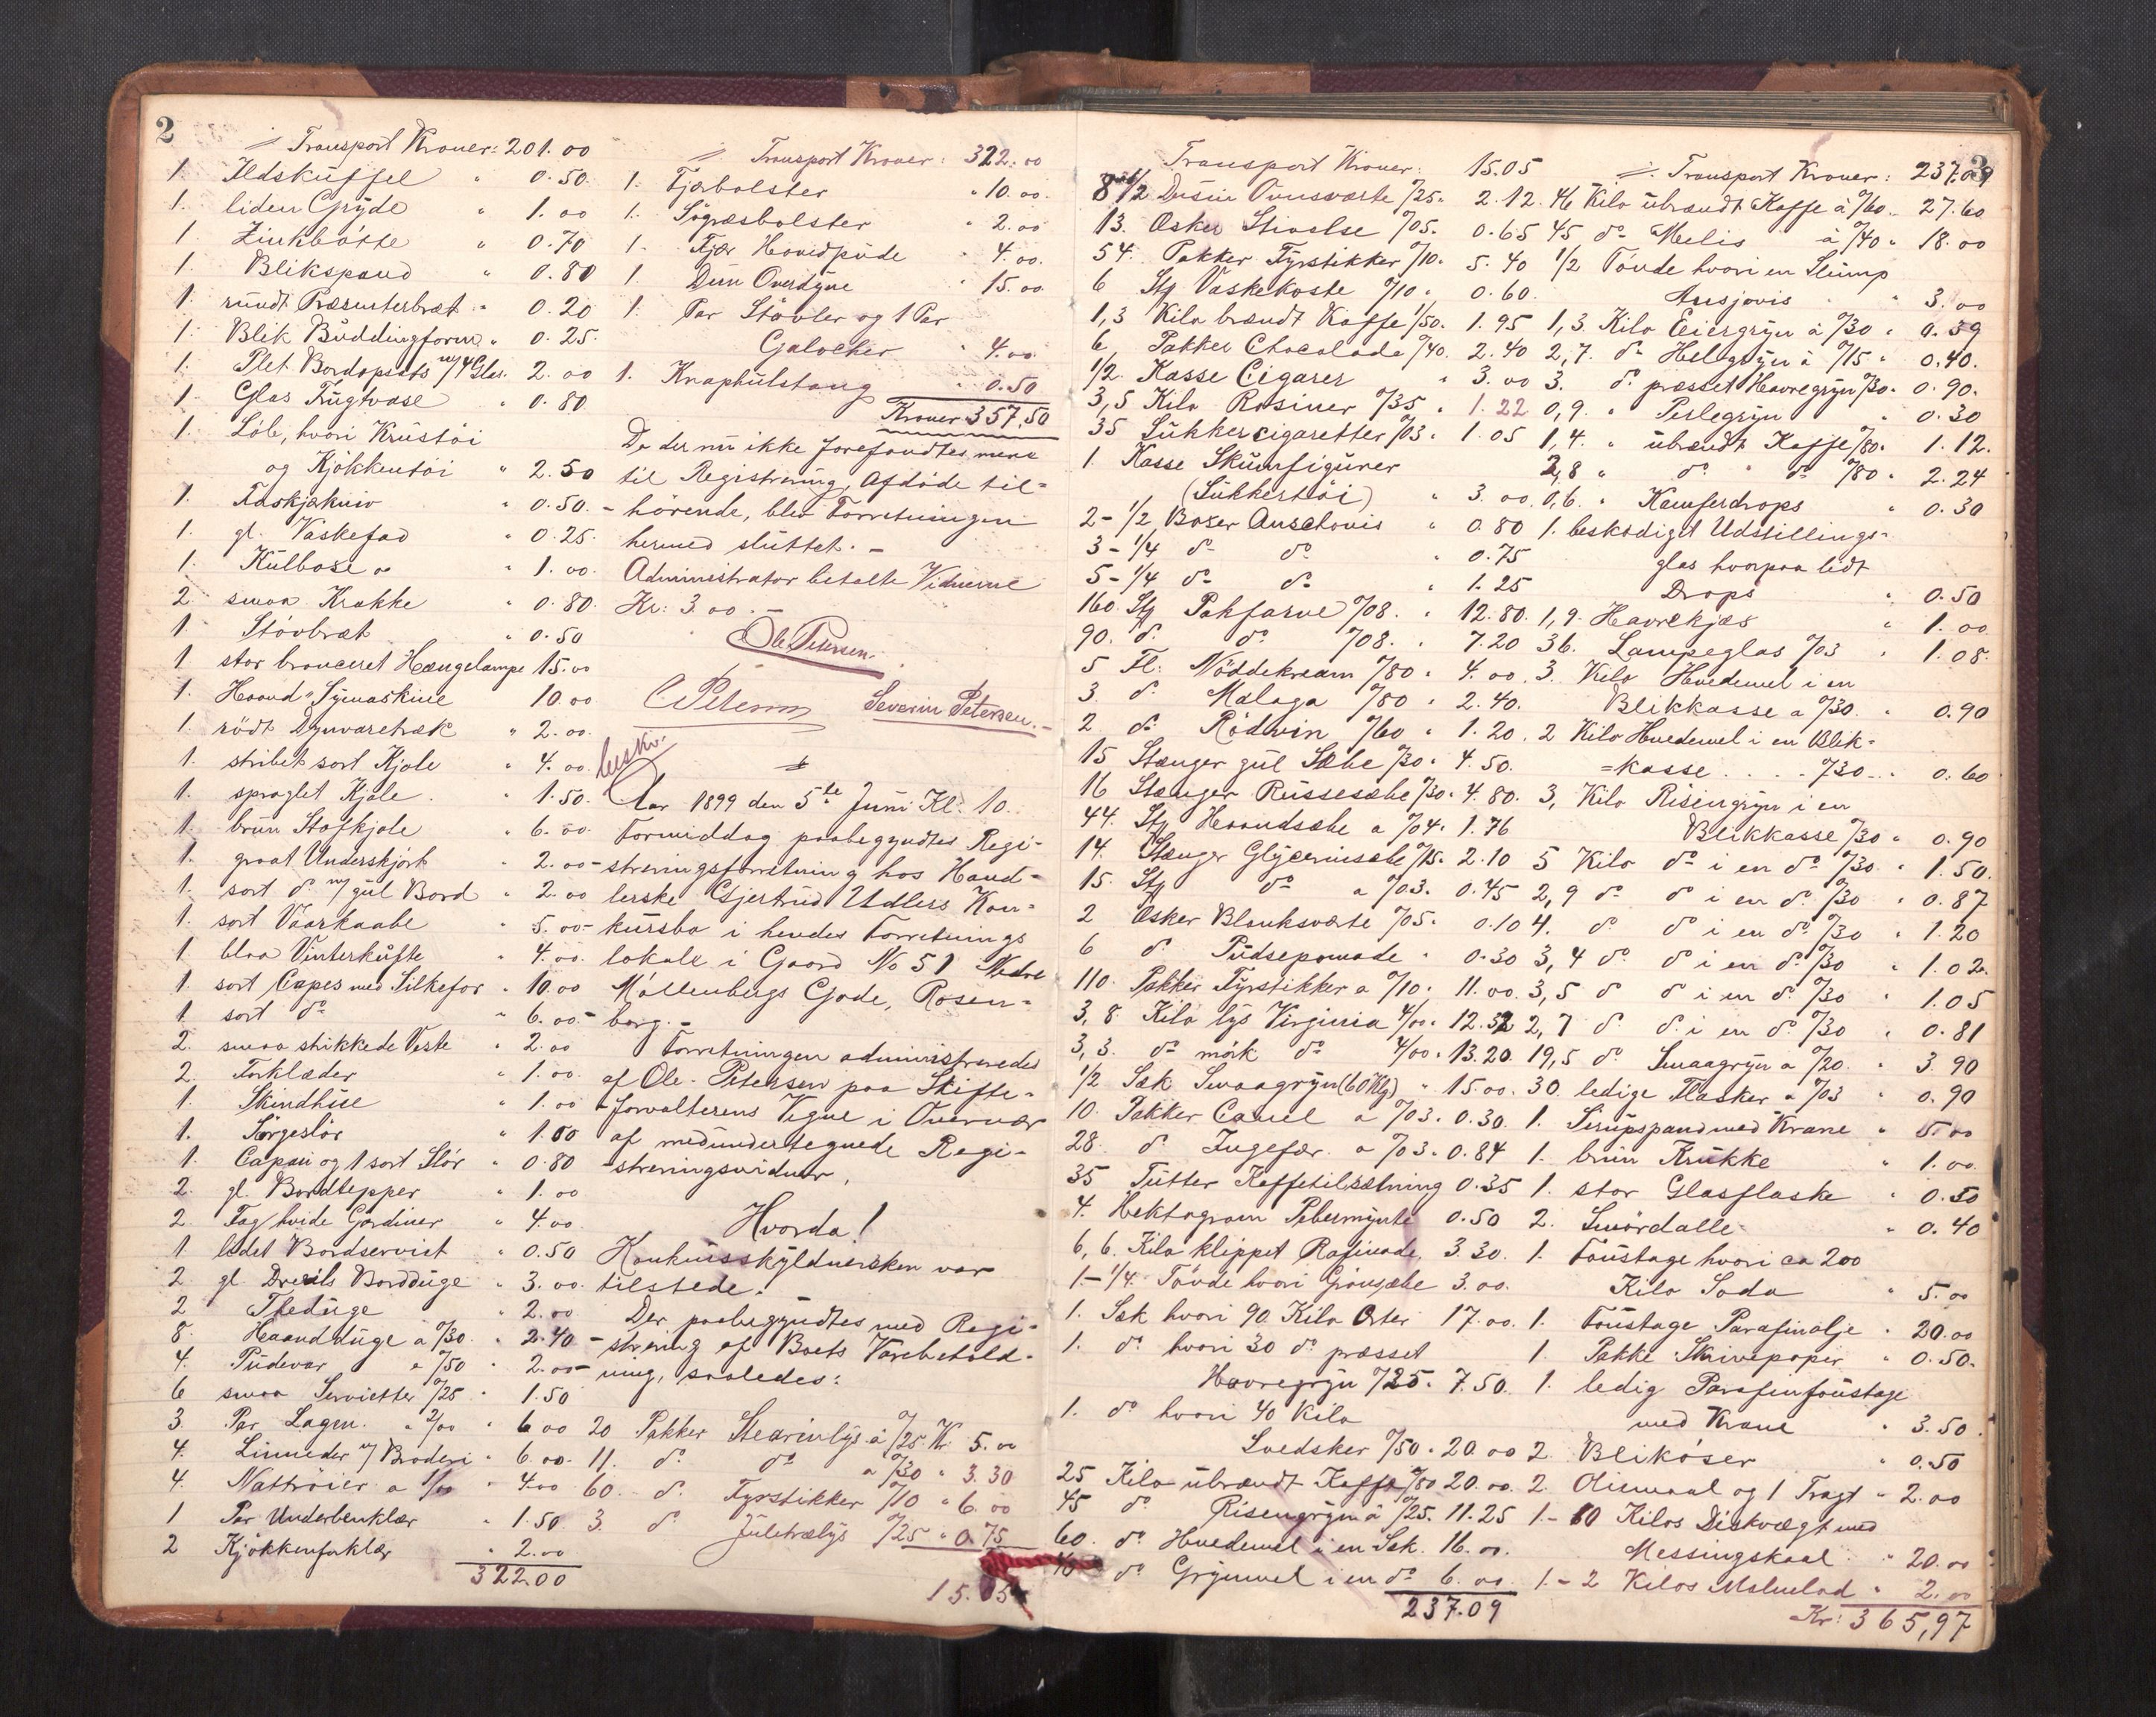 2
Transport Kroner: 201.00
1. Ildskuffel " 0.50
1. liden Gryde " 1.00
1. Zinkbøtte " 0.70
1. Blikspand " 0.80
1. rundt Præsenterbræt " 0.20
1. Blik Buddingform " 0.25
1. Plet Bordopsats m/4 Glas. 2.00
1. Glas Frugtvase " 0.80
1. Löb, hvori Krustöi
og Kjökkentöi " 2.50
1. Faskjækniv " 0.50
1. gl. Vaskefad " 0.25
1. Kulbose " 1.00
2 smaa Krakke " 0.80
1 Stövbræt " 0.50
1 stor bronceret Hængelampe 15.00
1. Haand Symaskine 10.00
1. rödt Dynvaretræk " 2.00
1. stribet sort Kjole " 4.00
1. spraglet Kjole " 1.50
1. brun Stofkjole " 6.00
1. graat Underskjört " 2.00
1. sort do m/ gul Bord " 2.00
1. sort Vaarkaabe " 5.00
1 blaa Vinterkufte " 4.00
1. sort Capes med Silkefor " 10.00
1. sort do " 6.00
2. smaa strikkede Veste " 2.00
2. Forklæder " 1.00
1. Skindhue " 1.00
1. Sørgeslör " 1.00
1. Capsu og 1 sort Slör " 0.80
2. gl. Bordtepper " 1.00
2. Fag hvide Gardiner " 4.00
1 ledet Bordserviet " 0.50
2 gl. Dreils Bordduge " 3.00
2 Theduge " 2.00
8. Haandduge a 0/30 " 2.40
4. Pudevar a 0/50 " 2.00
6 smaa Servietter 0/25 " 1.50
3 Par Lagen. a 2/00 " 6.00
4. Linneder m/ Broderi " 6.00
4. Nattröier a 1/00 " 4.00
1 Par Underbenklær " 1.50
2 Kjökkenforklær " 2.00
322.00
Transport Kroner: 322.00
1. Fjærbolster " 10.00
1. Sögræsbolster " 2.00
1. Fjær Hovedpude " 4.00
1. Dun Overdyne " 15.00
1. Par Stövler og 1 Par
Galocher " 4.00
1. Knaphulstang " 0.50
Kroner 357,50
Da der nu ikke forefandtes mere
til Registrering, Afdöde til-
hörende, blev Forretningen
hermed sluttet. -
Administrator betalte Vidnerne
Kr: 3.00. -
Ole Petersen.
C Petersen Severin Petersen. -
beskr.
Aar 1899 den 5te Juni Kl: 10
Formiddag paabegyndtes Regi-
streringsforretning hos Hand-
lerske Gjertrud Udlers Kon-
kursbo i hendes Forretnings
lokale i Gaard No 51 Nedre
Möllenbergs Gade, Rosen-
borg. -
Forretningen administreredes
af Ole Petersen paa Skifte-
forvalterens Vegne i Overvær
af medundertegnede Regi-
streringsvidner.
Hvorda!
Konkursskyldnersken var
tilstede.
Der paabegyndtes med Regi-
strering af Boets Varebehold-
ning, saaledes:
20 Pakker Stearinlys à 0/25 Kr 5.00
11. do do a 0/30 " 3.30
60. do Fyrstikker 0/10 " 6.00
3. do Juletrælys 0/25 " 0.75
15.05
3
Transport Kroner: 15.05
8 1/2 Dusin Ovnsværte 0/25 " 2.12
13. Æsker Stivelse 0/05 " 0.65
54. Pakker Fyrstikker 0/10 " 5.40
6 Stg Vaskekoste 0/10 " 0.60
1,3 Kilo brændt Kaffe 1/50 " 1.95
6 Pakker Chocolade 0/40 2.40
1/2 Kasse Cigarer " 3.00
3,5 Kilo Rosiner 0/35 " 1.22
35 Sukkercigaretter 0/03 " 1.05
1. Kasse Skumfigurer
(Sukkertöi) " 3.00
2 - 1/2 Boxer Anschovis " 0.80
3 - 1/4 do do " 0.75
5 - 1/4 do do " 1.25
160 Stg Pakfarve 0/08 " 12.80
90. do do 0/08 " 7.20
5 Fl: Nöddekream 0/80 " 4.00
3. do Malaga 0/80 " 2.40
2 do Rödvin 0/60 " 1.20
15 Stænger gul Sæbe 0/30 " 4.50
16 Stænger Russesæbe 0/30 " 4.80
44. Stg Haandsæbe a 0/04 " 1.76
14. Stænger Glycerinsæbe 0/15 " 2.10
15. Stg do a 0/03 " 0.45
2 Æsker Blanksværte 0/05 " 0.10
6 do Pudsepomade " 0.30
110. Pakker Fyrstikker a 0/10 " 11.00
3,8 Kilo lys Virginia 4/00 " 12.32
3,3. do mörk do 4/00 " 13.20
1/2 Sæk Smaagryn (60 Klg) " 15.00
10. Pakker Canel a 0/03 " 0.30
28. do Ingefær a 0/03 " 0.84
35 Tutter Kaffetilsætning 0.35
4. Hektogram Pebermynte 0.50
6,6. Kilo klippet Rafinade 3.30
1 - 1/4 Tönde hvori Grönsæbe 3.00
1. Sæk hvori 90 Kilo Erter 17.00
1. do hvori 30 do presset
Havregryn 0/25 " 7.50
1. do hvori 40 Kilo
Svedsker 0/50 " 20.00
25 Kilo ubrændt Kaffe 0/80 20.00
45 do Risengryn à 0/25 " 11.25
60. do Hvedemel i en Sæk 16.00
40 do Grynmel i en do 6.00
237.09
Transport Kroner: 237.09
46 Kilo ubrændt Kaffe à 0/60 " 27.60
45 do Melis à 0/40 " 18.00
1/2 Tönde hvori en Slump
Ansjovis " 3.00
1,3. Kilo Eiergryn à 0/30 " 0.39
2,7. do Helegryn à 0/15 " 0.40
3. do presset Havregryn 0/30 " 0.90
0,9. " Perlegryn " 0.30
1,4. " ubrændt Kaffe 0/80 " 1.12
2,8 " do " do 0/80 " 2.24
0,6. " Kamferdrops " 0.30
1. beskadiget Udstillings-
glas hvorpaa lidt
Drops " 0.50
1,9. Havrekjæs " 1.00
36. Lampeglas 0/03 " 1.08
3. Kilo Hvedemel i en
Blikkasse a 0/30 " 0.90
2 Kilo Hvedemel i en Blik-
=kasse . . . . 0/30 " 0.60
3, Kilo Risengryn i en
Blikkasse 0/30 " 0.90
5 Kilo do i en do 0/30 " 1.50
2,9 do do i en do 0/30 " 0.87
4. do do i en do 0/30 " 1.20
3,4 do do i en do 0/30 " 1.02
3,5 do do i en do 0/30 " 1.05
2,7 do do i en do 0/30 " 0.81
19,5 do Smaagryn a 0/20 " 3.90
30. ledige Flasker a 0/03 " 0.90
1. Sirupspand med Krane " 5.00
1. brun Krukke " 1.00
1. stor Glasflaske " 0.50
2. Smördalle " 0.40
1. Foustage hvori ca 200
Kilo Soda " 5.00
1. Foustage Parafinolje " 20.00
1. Pakke Skrivepapir " 0.50
1. ledig Parafinfoustage
med Krane " 3.50
2 Bliköser " 0.50
2. Oliemaal og 1 Tragt " 2.00
1 - 10 Kilos Diskvægt med
Messingskaal " 20.00
1 - 2 Kilos " 2.00
Kr: 365,97